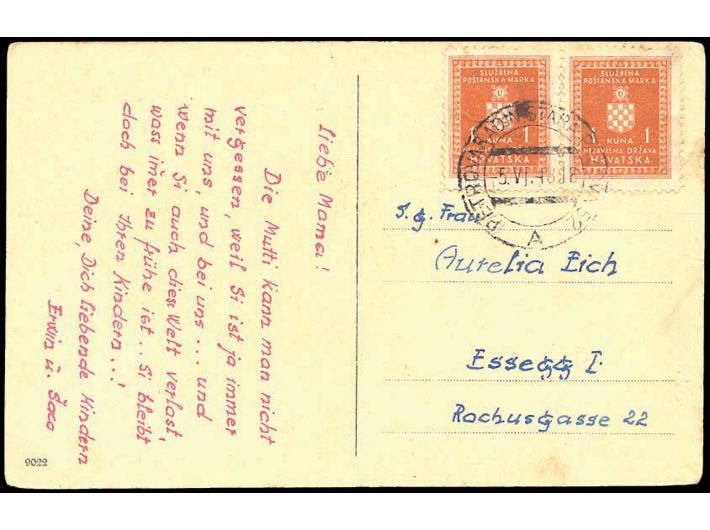 Liebe Mama!
Die Mutti kann man nicht
vergessen, weil Si ist ja immer
mit uns, und bei uns... und
wenn Si auch diese Welt verlast,
wass im̄er zu frühe ist.. Si bleibt
doch bei Ihren Kindern...!
Deine, Dich liebende Kindern
Erwin u. Šaco
9022
SLUŽBENA
POŠTANSKA MARKA
U
1 KUNA 1
NEZAVISNA DRŽAVA
HRVATSKA
SLUŽBENA
POŠTANSKA MARKA
U
KUNA 1
NEZAVISNA DRŽAVA
HRVATSKA
PETROVARADIN
A
S. g. Frau
Aurelia Eich
Essegg I.
Rochusgasse 22